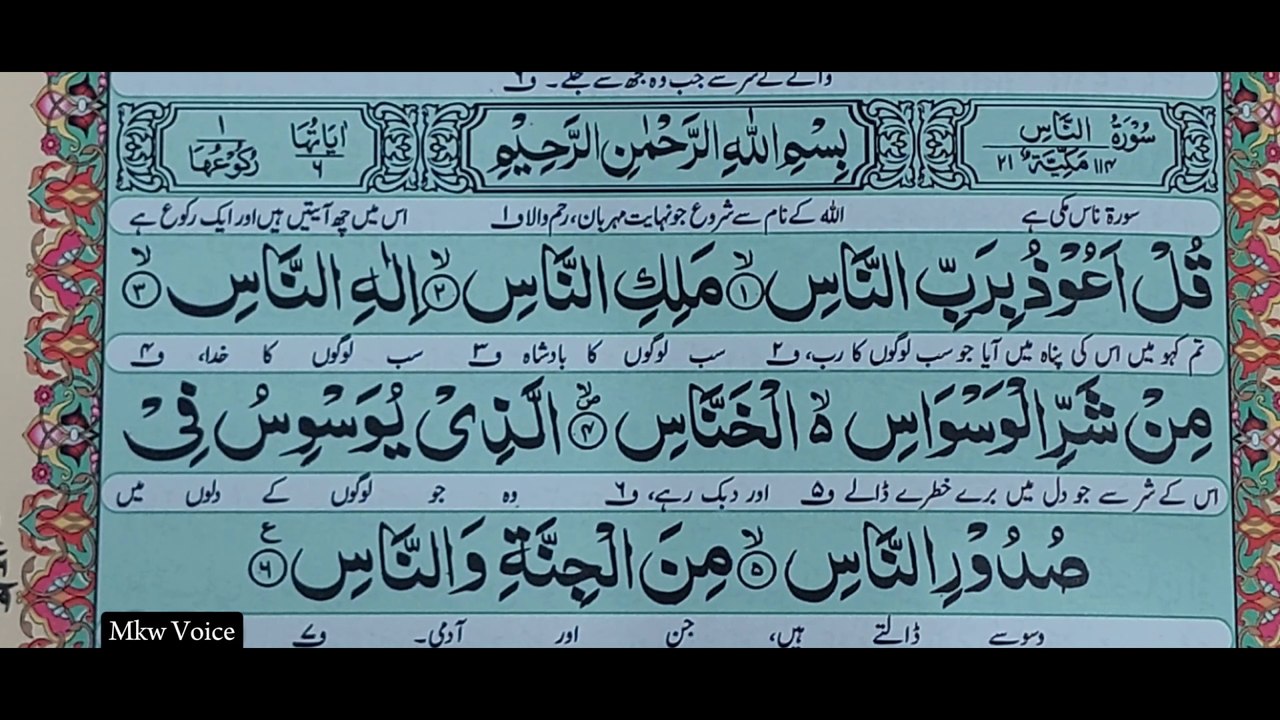 والے کے شر سے جب وہ مجھ سے جلے۔ ف۶
سُوْرَةُ النَّاسِ مَكِّيَّةٌ ١١٤ ٢١ بِسْمِ اللّٰهِ الرَّحْمٰنِ الرَّحِيْمِ اٰيَاتُهَا ٦ ١ رُكُوْعُهَا
سورۃ ناس مکی ہے اللہ کے نام سے شروع جو نہایت مہربان، رحم والا ف۱ اس میں چھ آیتیں ہیں اور ایک رکوع ہے
قُلْ اَعُوْذُ بِرَبِّ النَّاسِ ۙ﴿۱﴾ مَلِكِ النَّاسِ ۙ﴿۲﴾ اِلٰهِ النَّاسِ ۙ﴿۳﴾
تم کہو میں اس کی پناہ میں آیا جو سب لوگوں کا رب، ف۲ سب لوگوں کا بادشاہ ف۳ سب لوگوں کا خدا، ف۴
مِنْ شَرِّ الْوَسْوَاسِ ۙ۬ الْخَنَّاسِ ۪ۙ﴿۴﴾ الَّذِیْ یُوَسْوِسُ فِیْ
اس کے شر سے جو دل میں برے خطرے ڈالے ف۵ اور دبک رہے، ف۶ وہ جو لوگوں کے دلوں میں
صُدُوْرِ النَّاسِ ۙ﴿۵﴾ مِنَ الْجِنَّةِ وَالنَّاسِ ﴿۶﴾ ع
وسوسے ڈالتے ہیں، جن اور آدمی۔ ف۷
Mkw Voice